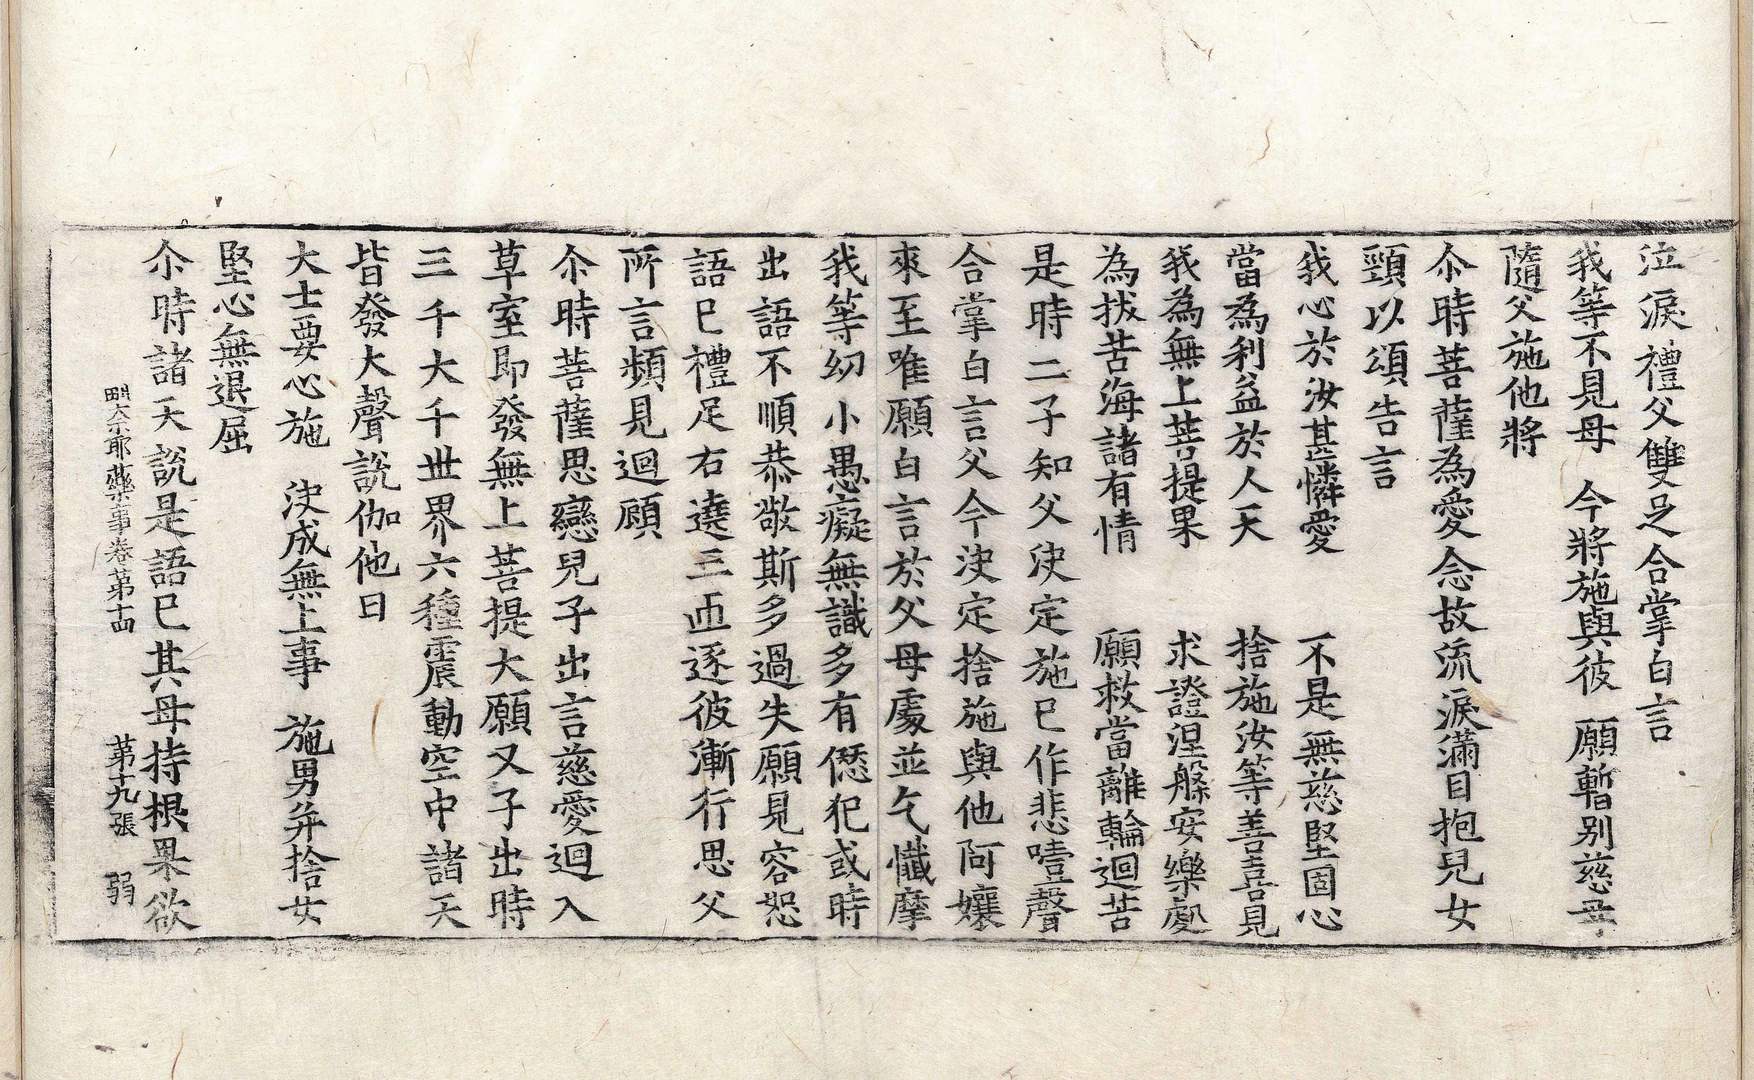 泣淚禮父雙足合掌白言
我等不見母　今將施與彼　願暫別慈母
隨父施他將
尒時菩薩為愛念故流淚滿目抱兒女
頸以頌告言
我心於汝甚憐愛　不是無慈堅固心
當為利益於人天　捨施汝等善喜見
我為無上菩提果　求證涅槃安樂處
為拔苦海諸有情　願救當離輪迴苦
是時二子知父決定施已作悲噎聲
合掌白言父今決定捨施與他阿孃
來至唯願白言於父母處並乞懺摩
我等幼小愚癡無識多有僽犯或時
出語不順恭敬斯多過失願見容恕
語已禮足右遶三匝逐彼漸行思父
所言頻見迴顧
尒時菩薩思戀兒子出言慈愛迴入
草室即發無上菩提大願又子出時
三千大千世界六種震動空中諸天
皆發大聲說伽他曰
大士要心施　決成無上事　施男并捨女
堅心無退屈
尒時諸天說是語已其母持根果欲
毗奈耶藥事卷第十四　第十九張　弱